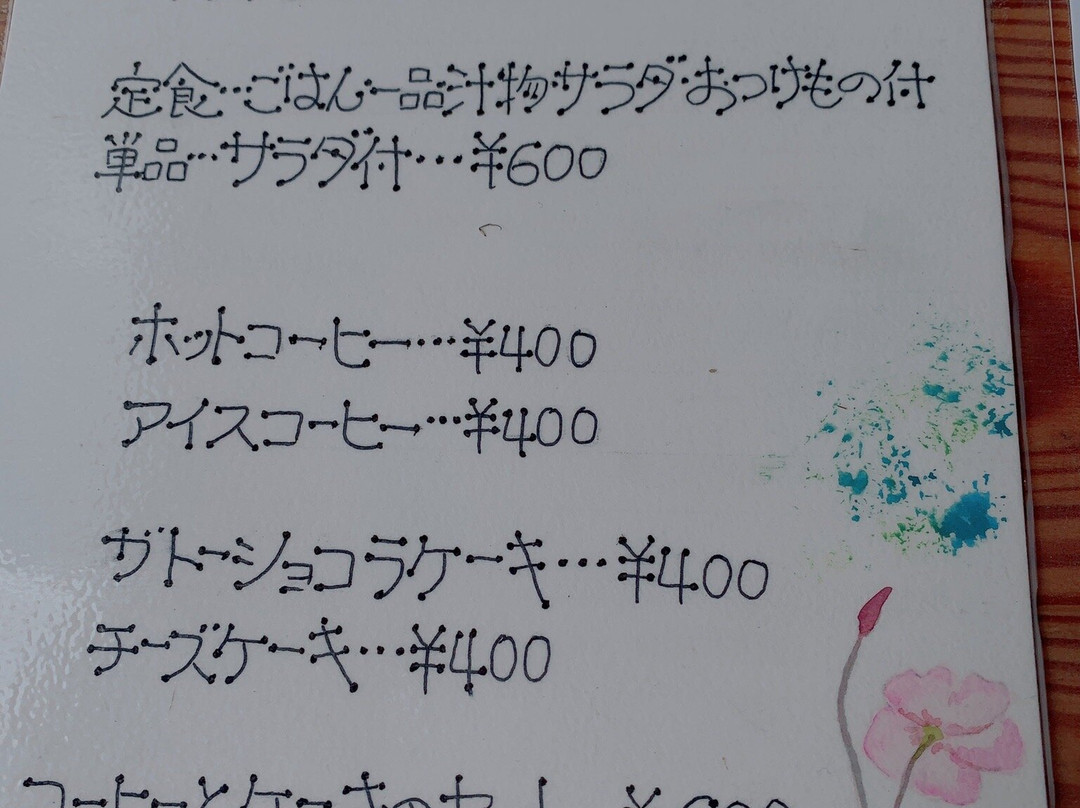 定食…ごはん一品汁物サラダおつけもの付
単品…サラダ付…¥600
ホットコーヒー…¥400
アイスコーヒー…¥400
ガトーショコラケーキ…¥400
チーズケーキ…¥400
コーヒーとケーキのセット